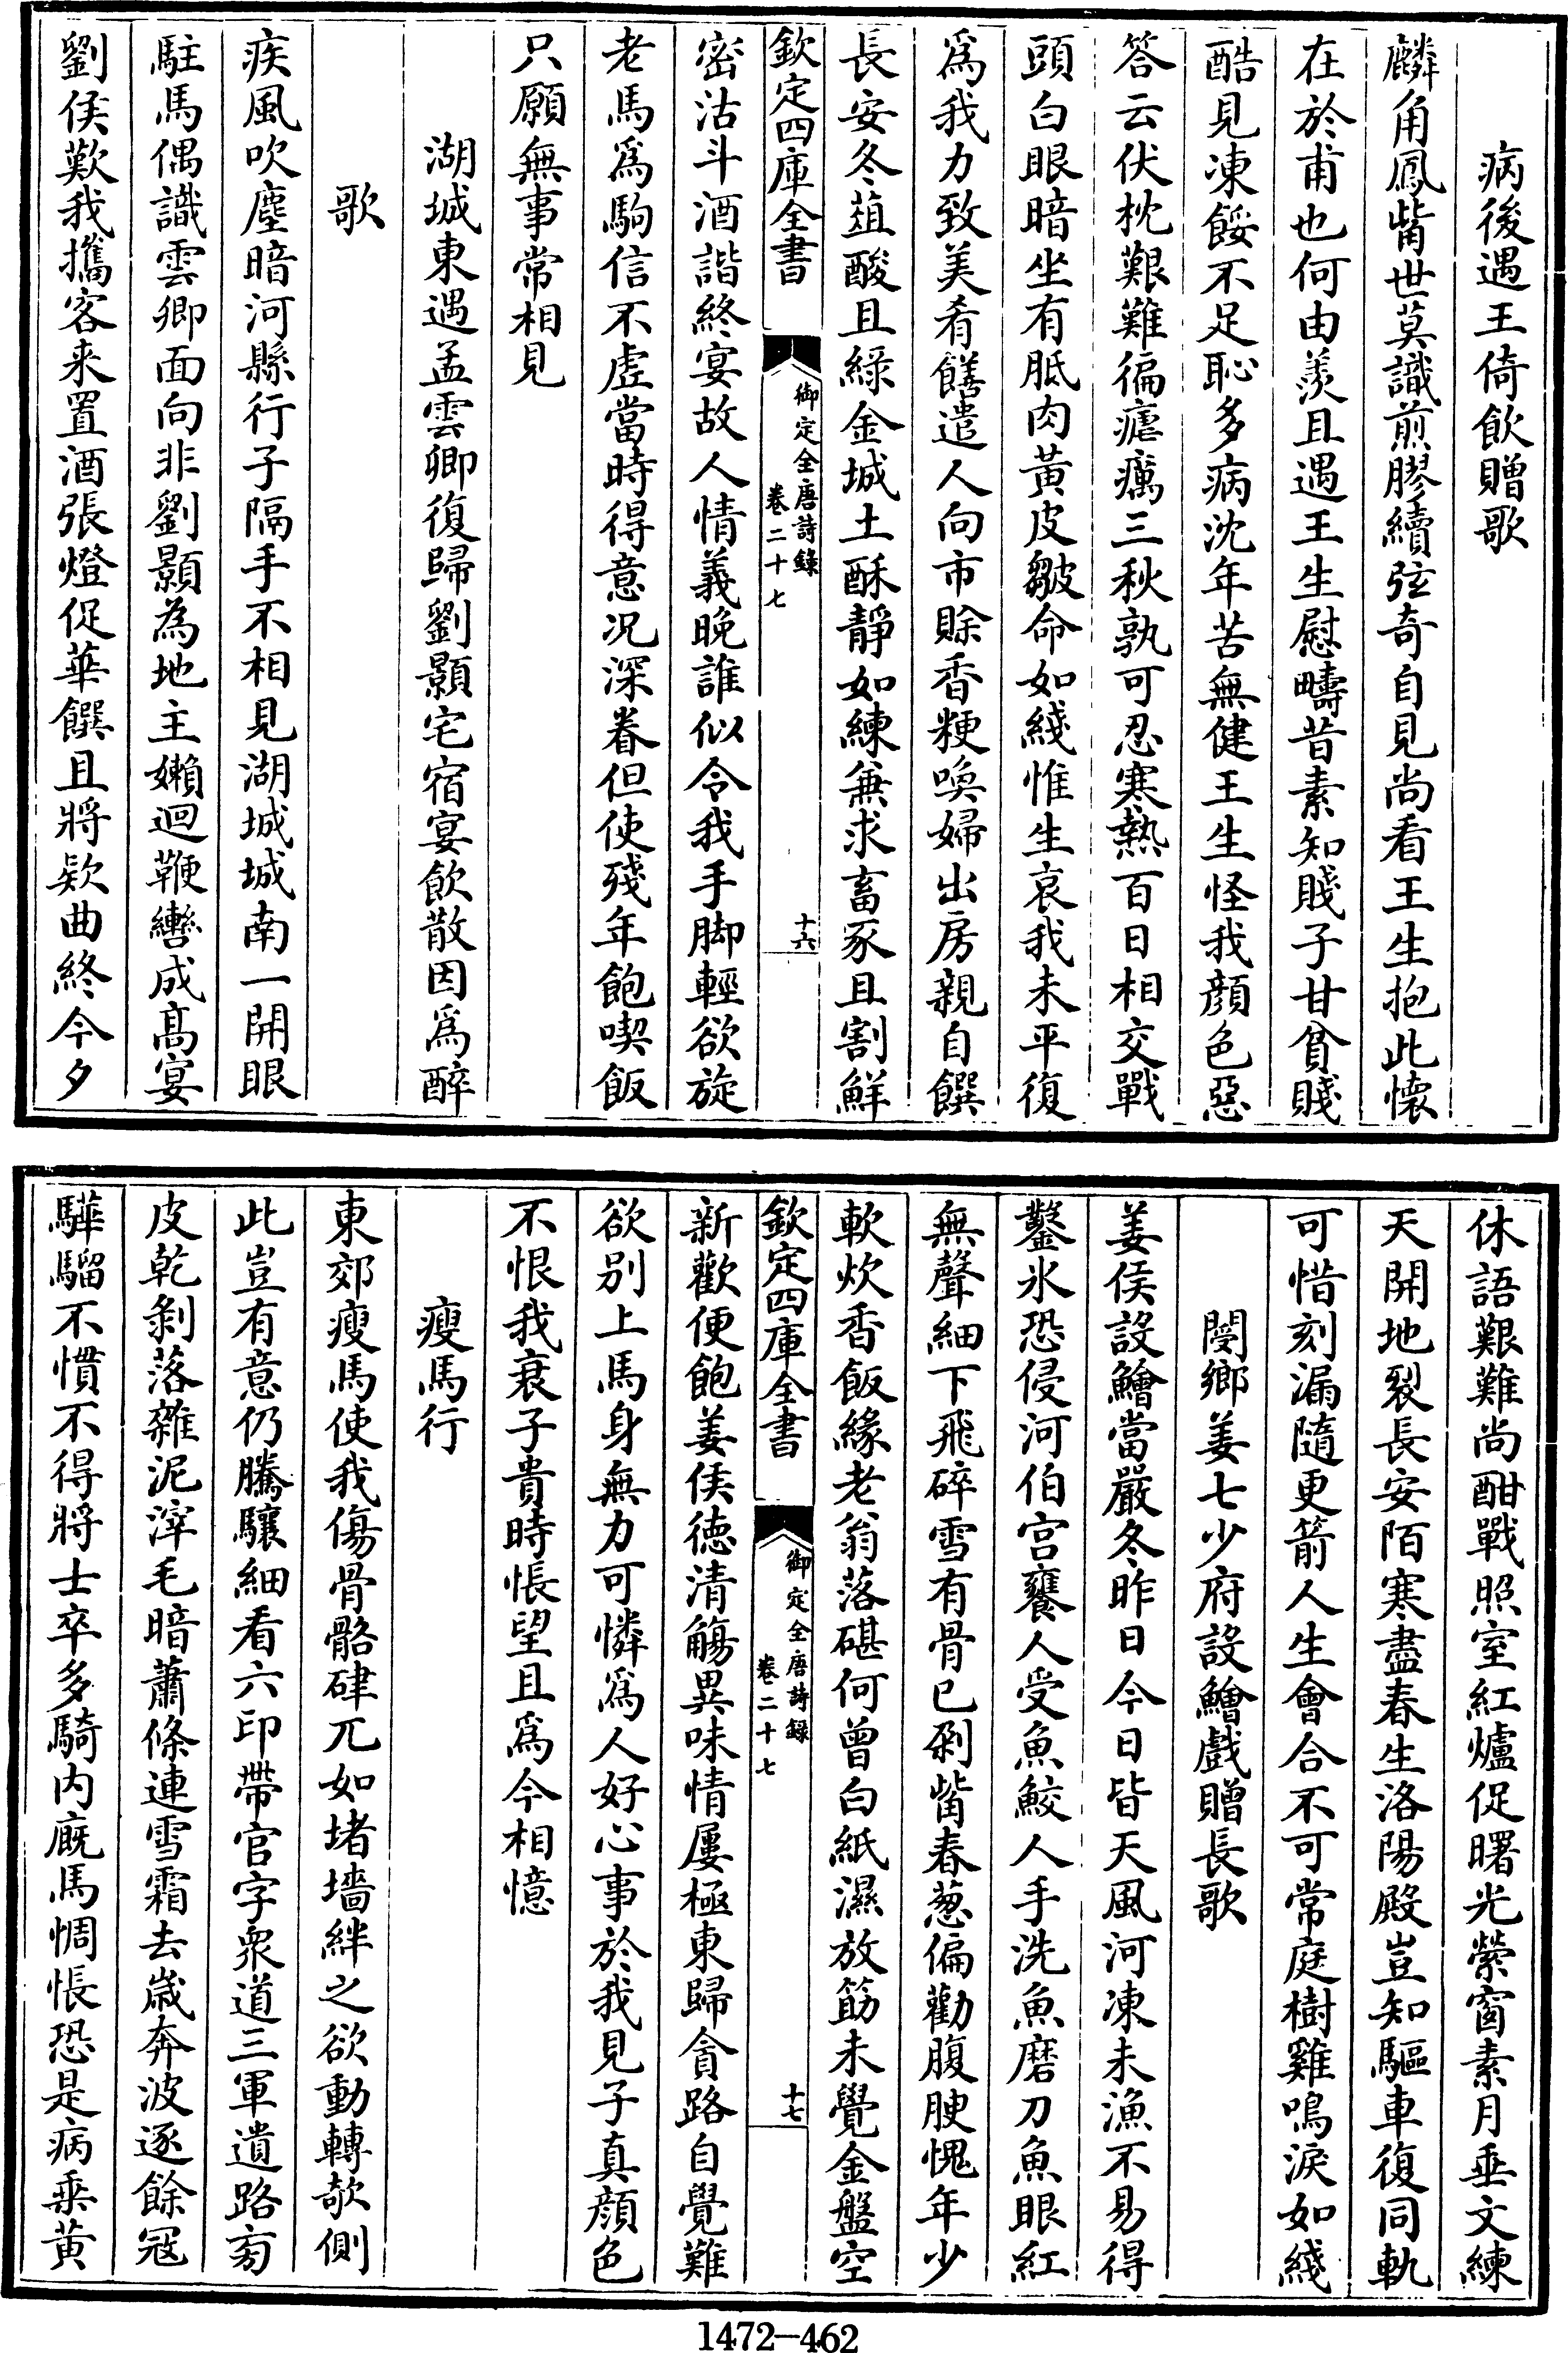 病後遇王倚飲贈歌
麟角鳳觜世莫識煎膠續弦奇自見尚看王生抱此懷
在於甫也何由羨且遇王生慰疇昔素知賤子甘貧賤
酷見凍餒不足恥多病沈年苦無健王生怪我顔色惡
答云伏枕艱難徧瘧癘三秋孰可忍寒熱百日相交戰
頭白眼暗坐有胝肉黃皮皺命如綫惟生哀我未平復
爲我力致美肴饍遣人向市賒香粳喚婦出房親自饌
長安冬葅酸且緑金城土酥靜如練兼求畜豕且割鮮
欽定四庫全書
御定全唐詩錄
卷二十七
十六
密沽斗酒諧終宴故人情義晚誰似令我手脚輕欲旋
老馬爲駒信不虛當時得意况深眷但使殘年飽喫飯
只願無事常相見
湖城東遇孟雲卿復歸劉顥宅宿宴飲散因爲醉
歌
疾風吹塵暗河縣行子隔手不相見湖城城南一開眼
駐馬偶識雲卿面向非劉顥為地主嬾迴鞭轡成髙宴
劉侯歎我攜客来置酒張燈促華饌且將欵曲終今夕
休語艱難尚酣戰照室紅爐促曙光縈窗素月垂文練
天開地裂長安陌寒盡春生洛陽殿豈知驅車復同軌
可惜刻漏隨更箭人生會合不可常庭樹雞鳴淚如綫
閿鄉姜七少府設鱠戲贈長歌
姜侯設鱠當嚴冬昨日今日皆天風河凍未漁不易得
鑿氷恐侵河伯宫饔人受魚鮫人手洗魚磨刀魚眼紅
無聲細下飛碎雪有骨已剁觜春葱偏勸腹腴愧年少
軟炊香飯緣老翁落碪何曾白紙濕放筯未覺金盤空
欽定四庫全書
御定全唐詩錄
卷二十七
十七
新歡便飽姜侯徳清觴異味情屢極東歸貪路自覺難
欲別上馬身無力可憐爲人好心事於我見子真顔色
不恨我衰子貴時悵望且爲今相憶
瘦馬行
東郊瘦馬使我傷骨骼硉兀如堵墻絆之欲動轉欹側
此豈有意仍騰驤細看六印帶官字衆道三軍遺路旁
皮乾剝落雜泥滓毛暗蕭條連雪霜去歲奔波逐餘冦
驊騮不慣不得將士卒多騎内廐馬惆悵恐是病乘黄
1472-462